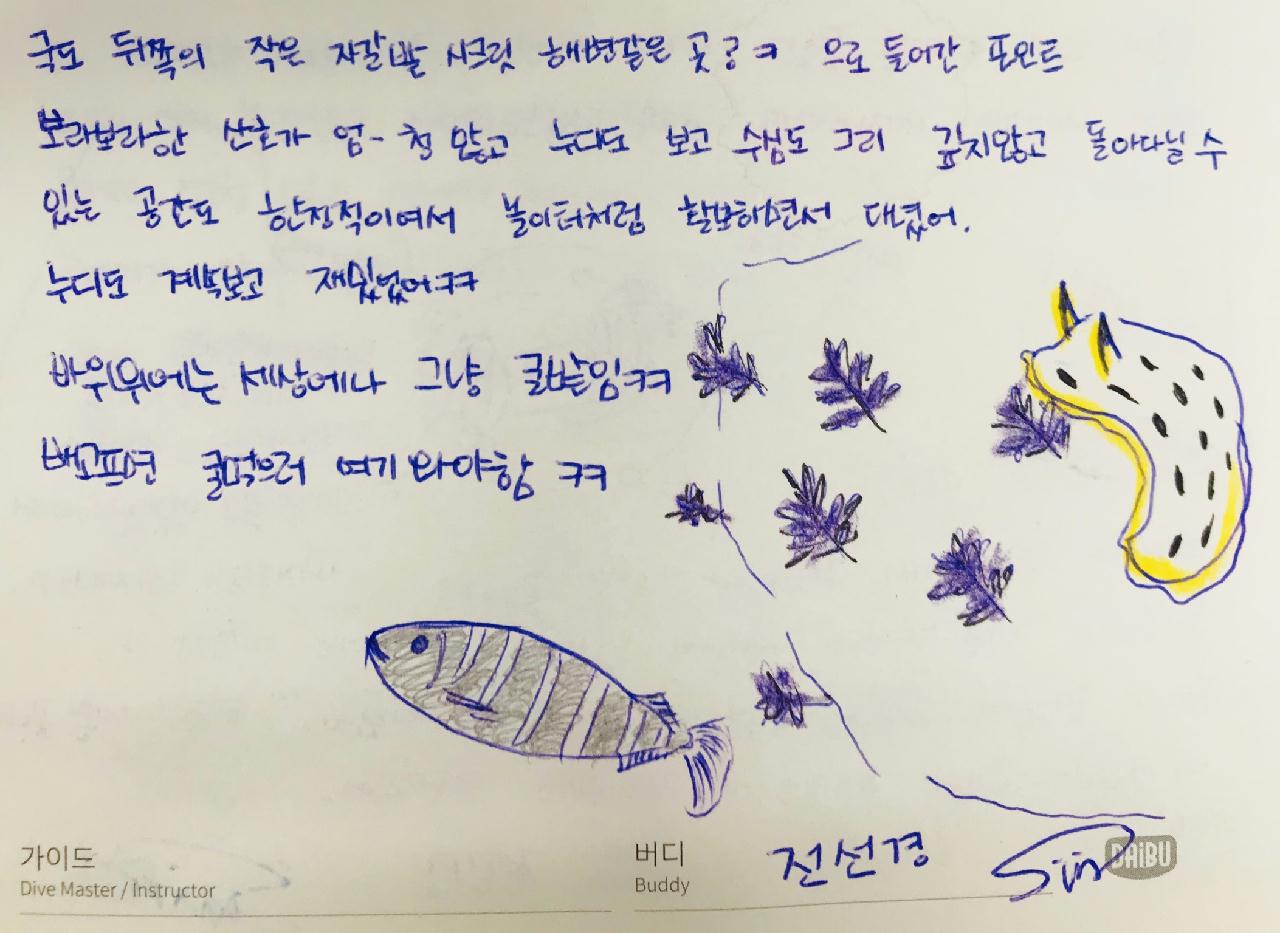 국도 뒤쪽의 작은 자갈밭 시크릿 해변같은 곳?ㅋ 으로 들어간 포인트
보라보라한 산호가 엄-청 많고 누디도 보고 수심도 그리 깊지않고 돌아다닐 수
있는 공간도 한정적이여서 놀이터처럼 활보하면서 대녔어.
누디도 계속보고 재밌었어ㅋㅋ
바위위에는 세상에나 그냥 굴밭임ㅋㅋ
배고프면 굴먹으러 여기 와야함 ㅋㅋ
가이드
Dive Master / Instructor
버디 전선경
Buddy
DAiBU